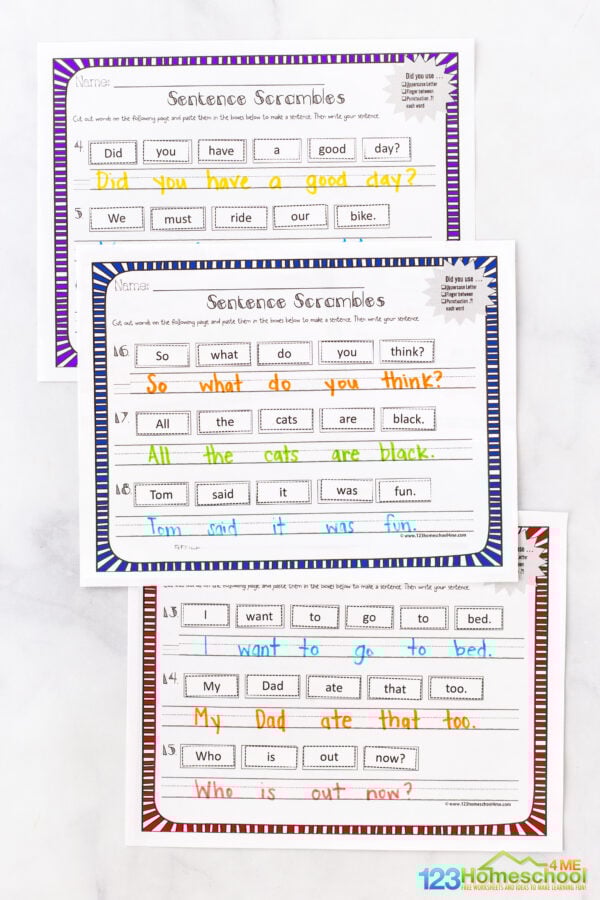 Name:
Sentence Scrambles
Did you use ...
Uppercase Letter
Finger between
Punctuation .?!
each word
Cut out words on the following page and paste them in the boxes below to make a sentence. Then write your sentence.
4. Did you have a good day?
Did you have a good day?
5. We must ride our bike.
Name:
Sentence Scrambles
Did you use ...
Uppercase Letter
Finger between
Punctuation .?!
each word
Cut out words on the following page and paste them in the boxes below to make a sentence. Then write your sentence.
16. So what do you think?
So what do you think?
17. All the cats are black.
All the cats are black.
18. Tom said it was fun.
Tom said it was fun.
© www.123homeschool4me.com
page and paste them in the boxes below to make a sentence. Then write your sentence.
13 I want to go to bed.
I want to go to bed.
14. My Dad ate that too.
My Dad ate that too.
15 Who is out now?
Who is out now?
© www.123homeschool4me.com
123 Homeschool 4 ME
FREE WORKSHEETS AND IDEAS TO MAKE LEARNING FUN!